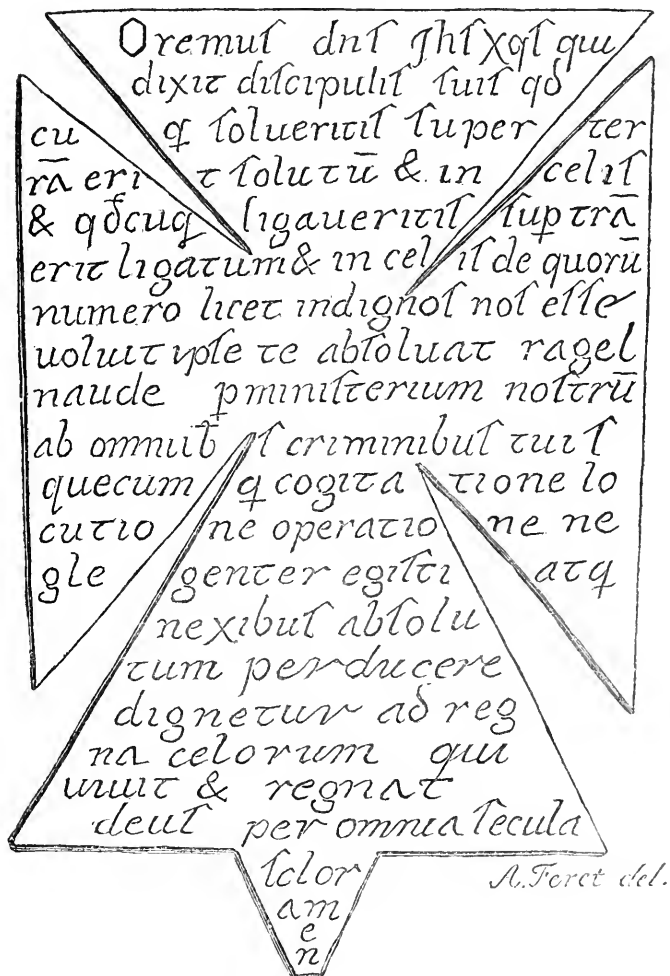 Oremuſ dnſ Jhſ xqſ qui
dixit diſcipuliſ ſuiſ qđ
cu q ſolueritiſ ſuper ter
rā eri t ſolutū & in celiſ
& qđcuq ligaueritiſ ſup trā
erit ligatum & in cel iſ de quorū
numero licet indignoſ noſ eſſe
uoluit ipſe te abſoluat ragel
naude p miniſterium noſtrū
ab omniƀ iſ criminibuſ tuiſ
quecum q cogita tione lo
cutio ne operatio ne ne
gle genter egiſti atq
nexibuſ abſolu
tum perducere
dignetur ađ reg
na celorum qui
uiuit & regnat
deuſ per omnia ſecula
ſclor
am
e
n
A. Feret del.